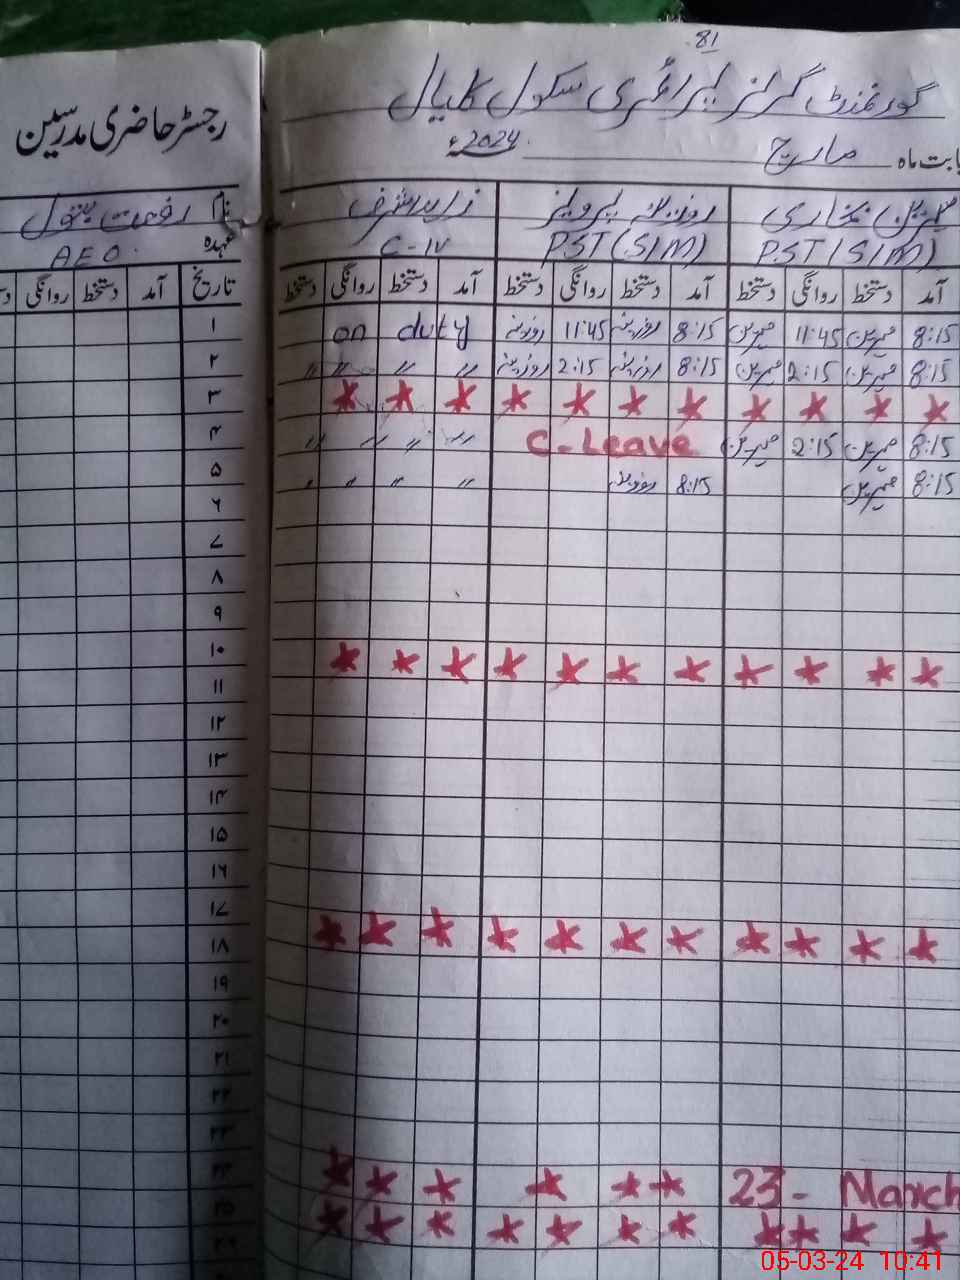 81
گورنمنٹ گرلز پرائمری سکول کلیال
رجسٹر حاضری مدرسین
بابت ماہ مارچ 2024ء
مہرین بخاری روزینہ پرویز زاہد اشرف نام رفعت بتول
PST(SIM) PST(SIM) C-IV عہدہ AEO.
آمد دستخط روانگی دستخط آمد دستخط روانگی دستخط آمد دستخط روانگی دستخط تاریخ آمد دستخط روانگی
8:15 مہرین 11:45 مہرین 8:15 روزینہ 11:45 روزینہ on duty ۱
8:15 مہرین 2:15 مہرین 8:15 روزینہ 2:15 روزینہ " " " " ۲
* * * * * * * * * * * ۳
8:15 مہرین 2:15 مہرین C-Leave " " " " ۴
8:15 مہرین 8:15 روزینہ " " " " ۵
۶
۷
۸
۹
* * * * * * * * * * * ۱۰
۱۱
۱۲
۱۳
۱۴
۱۵
۱۶
۱۷
* * * * * * * * * * * ۱۸
۱۹
۲۰
۲۱
۲۲
۲۳
23 - March * * * * * * ۲۴
* * * * * * * * * * * ۲۵
۲۶
05-03-24 10:41